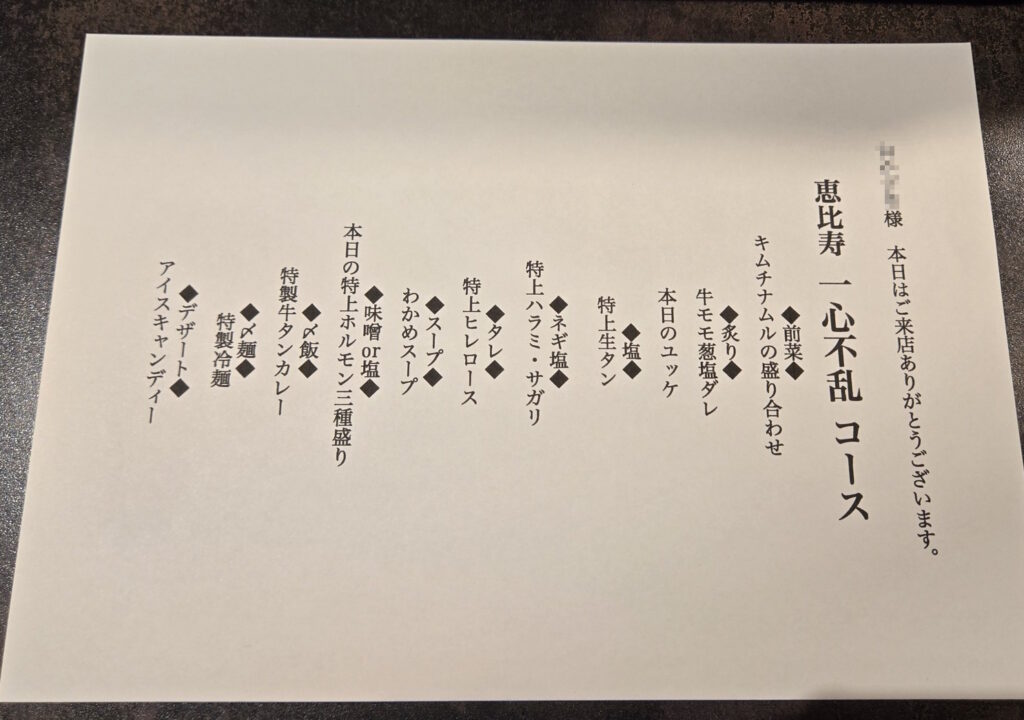 様 本日はご来店ありがとうございます。
恵比寿 一心不乱 コース
◆前菜◆
キムチナムルの盛り合わせ
◆炙り◆
牛モモ葱塩ダレ
本日のユッケ
◆塩◆
特上生タン
◆ネギ塩◆
特上ハラミ・サガリ
◆タレ◆
特上ヒレロース
◆スープ◆
わかめスープ
◆味噌or塩◆
本日の特上ホルモン三種盛り
◆〆飯◆
特製牛タンカレー
◆〆麺◆
特製冷麺
◆デザート◆
アイスキャンディー